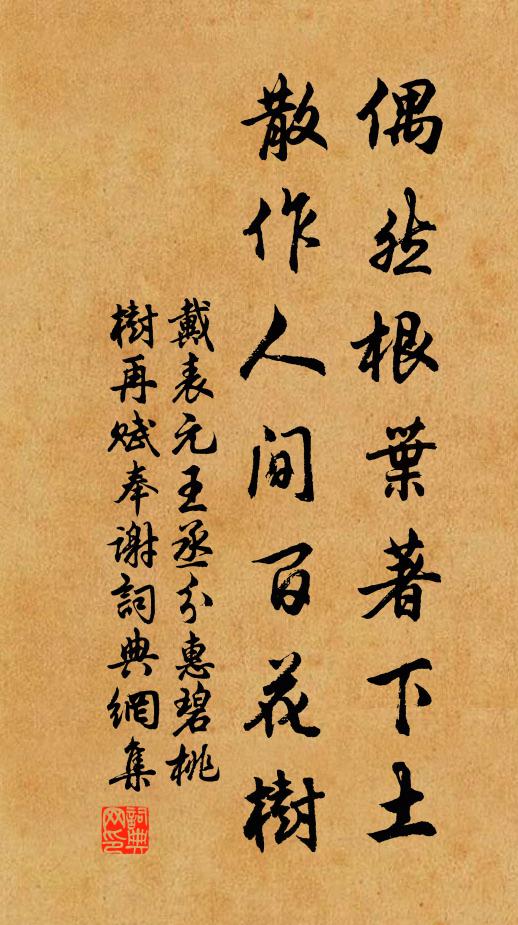 偶然根葉著下土
散作人间百花樹
戴表元王丞分惠碧桃
樹再赋奉谢詞典網集
詞典
网印